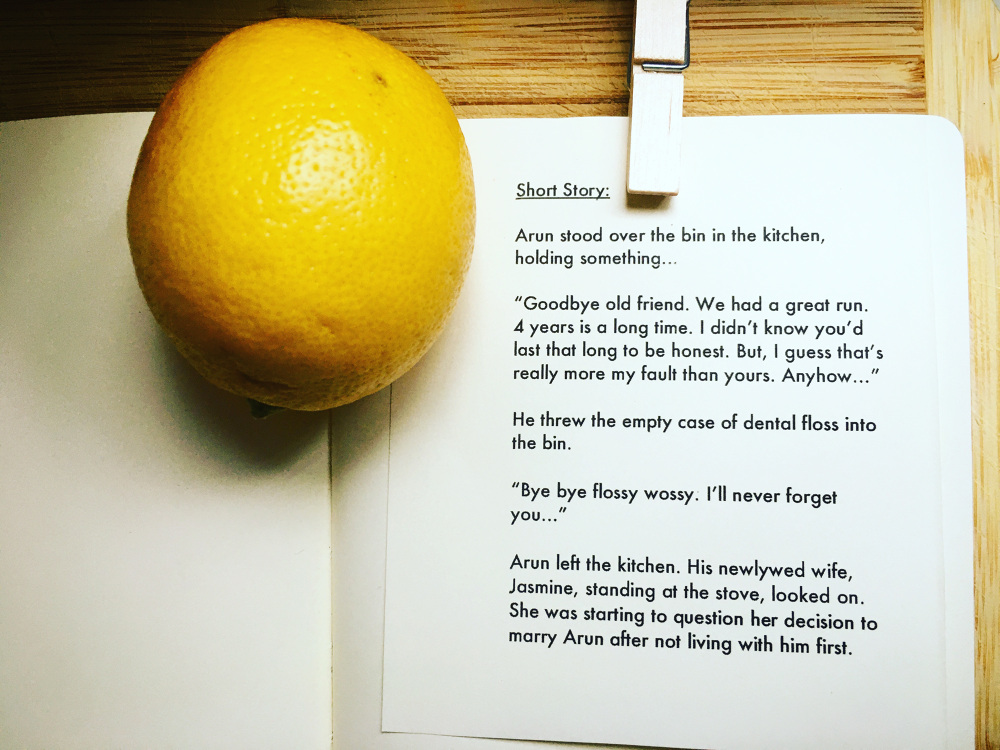 Short Story:
Arun stood over the bin in the kitchen,
holding something...
“Goodbye old friend. We had a great run.
4 years is a long time. I didn’t know you’d
last that long to be honest. But, I guess that’s
really more my fault than yours. Anyhow...”
He threw the empty case of dental floss into
the bin.
“Bye bye flossy wossy. I’ll never forget
you...”
Arun left the kitchen. His newlywed wife,
Jasmine, standing at the stove, looked on.
She was starting to question her decision to
marry Arun after not living with him first.